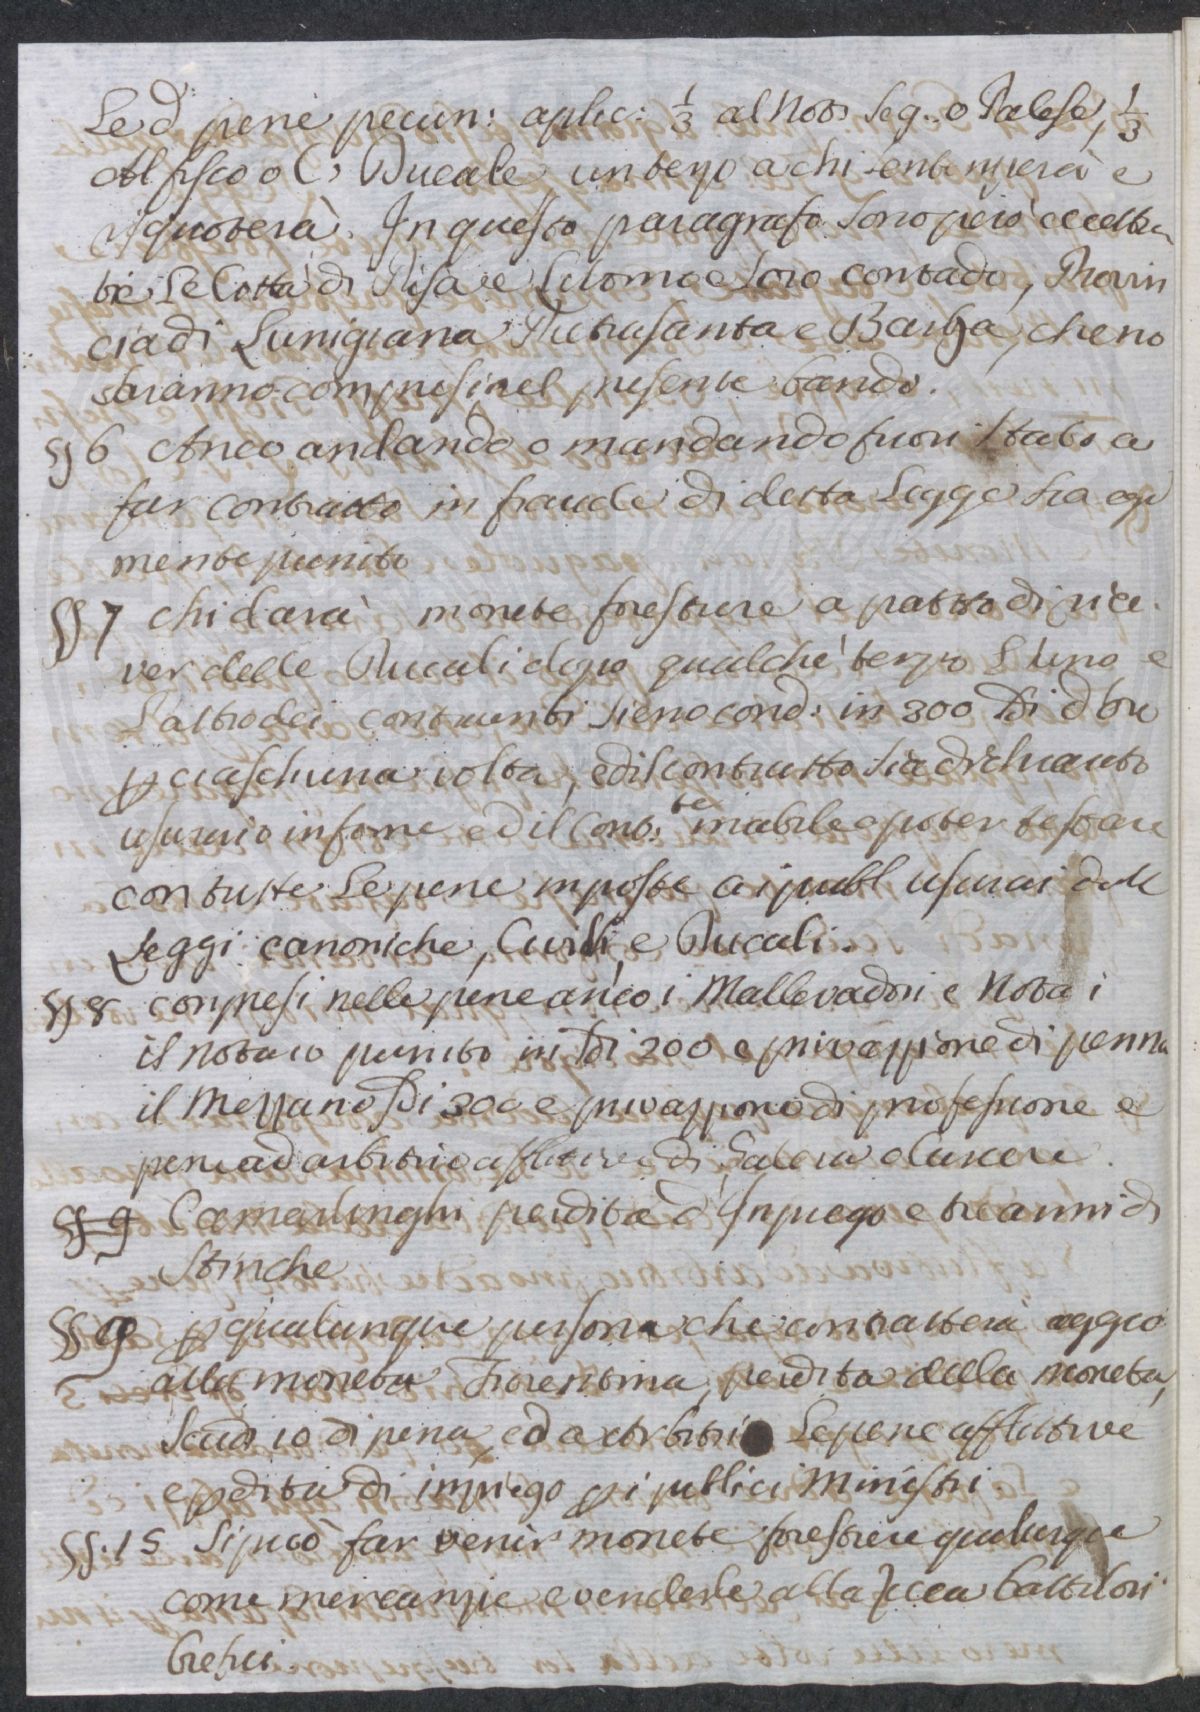 Le d. pene pecun: aplic: 1/3 al Not. Seg. o Palese, 1/3
Al fisco o C. Ducale un terzo a chi sentenzierà e
risquoterà. In questo paragrafo sono però eccettua
te Le Città di Pisa e Livorno e Loro contado, Provin
cia di Lunigiana Pietrasanta e Barga, che no
saranno compresi nel presente bando.
§§ 6 Anco andando o mandando fuori Stato a
far contratto in fraude di detta Legge sia egl
mente punito
§§ 7 Chi darà monete forestiere a patto di rice
ver delle Ducali dopo qualche tempo L'uno e
L'altro dei contraenti sieno cond: in 300 Di d'oro
p ciaschuna volta, ed il contratto sia dichiarato
usurario infame ed il Cont:te inabile a poter testare
con tutte Le pene imposte ai publ usurai dalle
Leggi canoniche, Civili e Ducali.
§§ 8 compresi nelle pene anco i Mallevadori e Notai
il notaio punito in Di 200 e privazzione di penna
il Mezzano Di 300 e privazzione di professione e
pene ad arbitrio afflittive di Galera o Carcere.
§§ 9 Camarlinghi perdita d'Inpiego e tre anni di
Stinche
§§ 9 p qualunque persona che contratterà aggio
alla moneta Fiorentina, perdita della moneta,
Scudi 10 di pena, ed a arbitrio Le pene afflittive
e pdita di impiego p i publici Ministri.
§§. 15 Si può far venir monete forestiere qualunque
come mercanzie e venderle alla Zecca battilori
Orefici